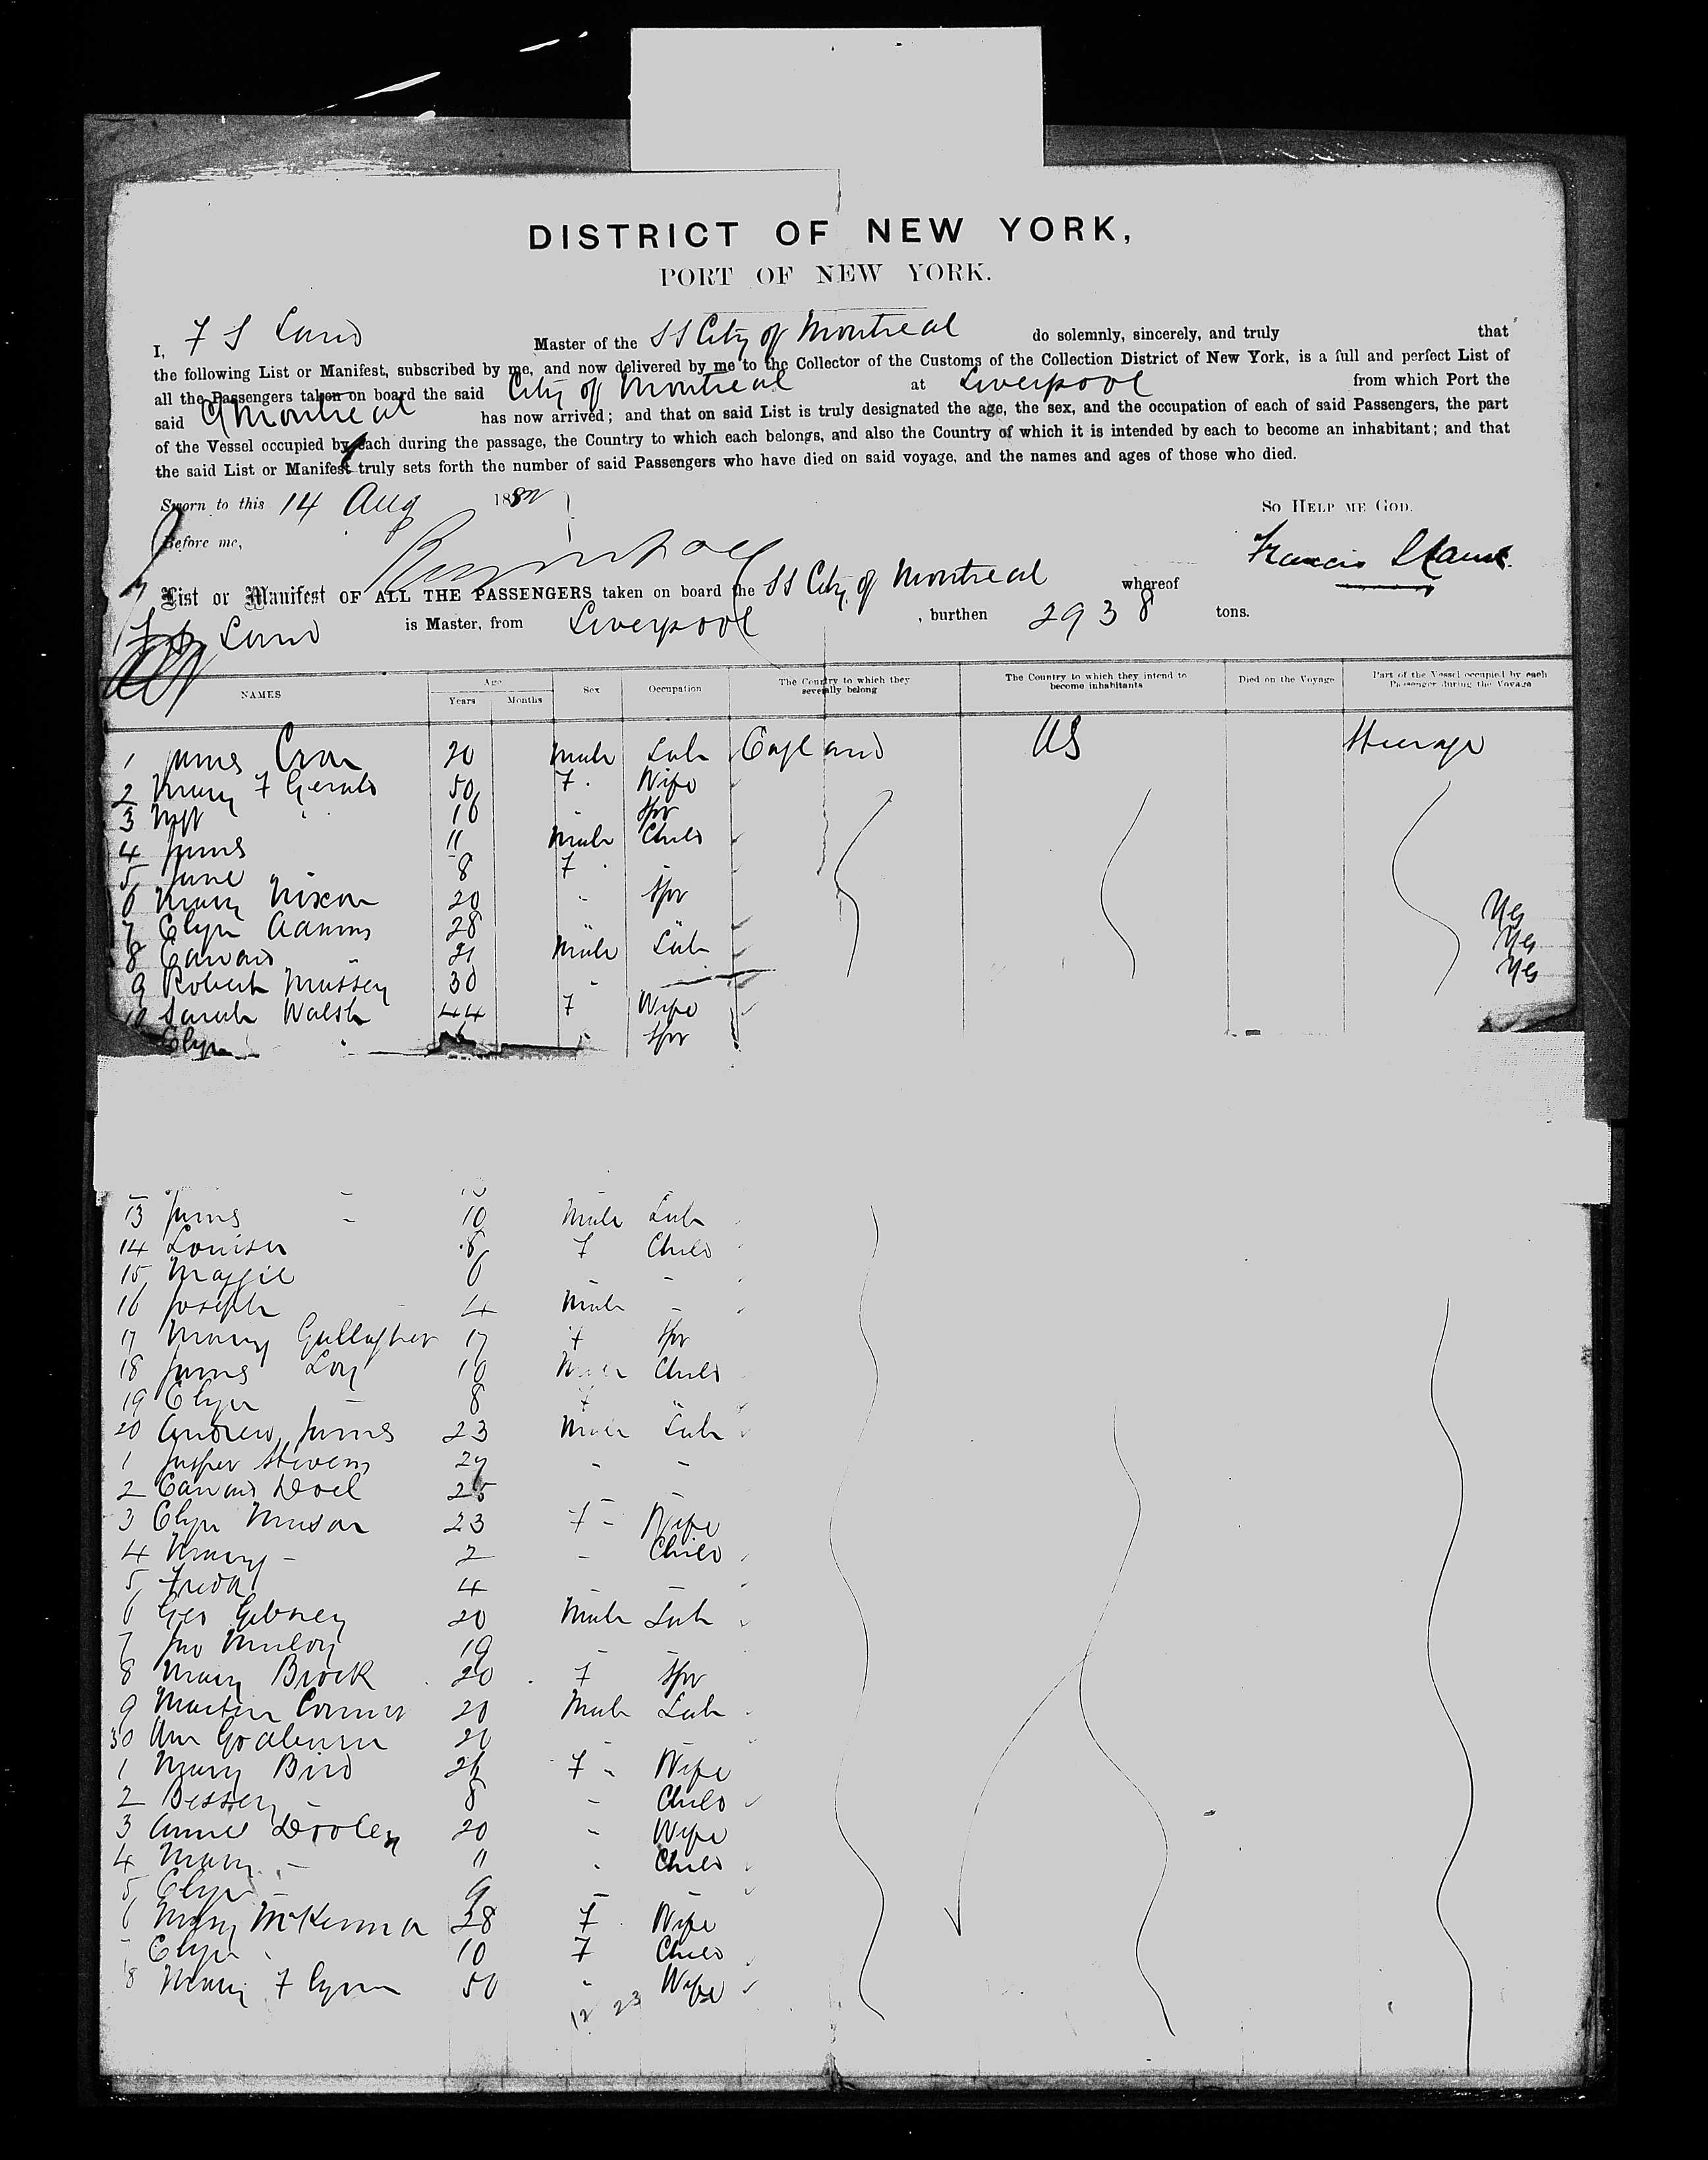 DISTRICT OF NEW YORK,
PORT OF NEW YORK.
I, F S Land Master of the SS City of Montreal do solemnly, sincerely, and truly that
the following List or Manifest, subscribed by me, and now delivered by me to the Collector of the Customs of the Collection District of New York, is a full and perfect List of
all the Passengers taken on board the said City of Montreal at Liverpool from which Port the
said C Montreal has now arrived; and that on said List is truly designated the age, the sex, and the occupation of each of said Passengers, the part
of the Vessel occupied by each during the passage, the Country to which each belongs, and also the Country of which it is intended by each to become an inhabitant; and that
the said List or Manifest truly sets forth the number of said Passengers who have died on said voyage, and the names and ages of those who died.
Sworn to this 14 Aug 1882 So Help me God.
Before me, Francis S Land.
List or Manifest OF ALL THE PASSENGERS taken on board the SS City of Montreal whereof
F S Land is Master, from Liverpool, burthen 2938 tons.
NAMES Age Years Months Sex Occupation The Country to which they severally belong The Country to which they intend to become inhabitants Died on the Voyage Part of the Vessel occupied by each Passenger during the Voyage
1 James 20 Male Lab England US Steerage
2 Mary F Gerald 50 F Wife
3 16 " Spr
4 James 11 Male Child
5 Jane 8 F "
6 Mary Nixon 20 " Spr Yes
7 Eliza Adams 28 " " Yes
8 Edward " 21 Male Lab Yes
9 Robert Massey 30 "
10 Sarah Walsh 44 F Wife
Eliza " " Spr
13 James " 10 Male Lab
14 Louisa 8 F Child
15 Maggie 6 " "
16 Joseph 4 Male "
17 Mary Gallagher 17 F Spr
18 James Loy 10 Male Child
19 Eliza " 8 F "
20 Andrew James 23 Male Lab
1 Jasper Stevens 29 " "
2 Edward Doel 25 " "
3 Eliza Mason 23 F Wife
4 Mary " 2 " Child
5 Freda 4 " "
6 Geo Gibney 20 Male Lab
7 Jno 19 " "
8 Mary Brock 20 F Spr
9 Martin Connor 20 Male Lab
30 Wm 21 " "
1 Mary Bird 26 F Wife
2 Bessey " 8 " Child
3 Annie Dooley 20 " Wife
4 Mary " 11 " Child
5 Eliza 9 " "
6 Mary McKenna 38 F Wife
7 Eliza " 10 F Child
8 Mary Flynn 50 " Wife
12 23